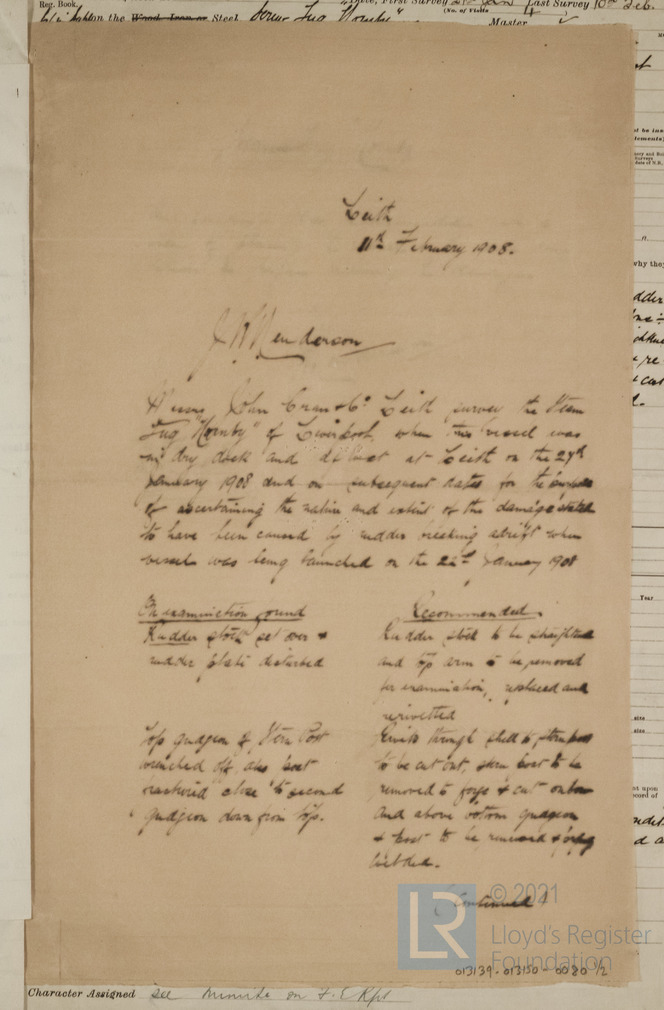 Reg. Book.
on the Wood Iron or Steel Screw Tug "Hornby"
First Survey
Last Survey 10th Feb.
(No. of Visits
Master
Leith
11th February 1908.
J R Henderson
Messrs John Cran & Co Leith survey the Steam
Tug "Hornby" of Liverpool, when this vessel was
in dry dock and afloat at Leith on the 27th
January 1908 and on subsequent dates for the purpose
of ascertaining the nature and extent of the damage stated
to have been caused by rudder breaking adrift when
vessel was being launched on the 22nd January 1908
On examination found
Recommended.
Rudder stock set over &
rudder plate disturbed
Rudder stock to be straightened
and top arm to be removed
for examination, replaced and
rerivetted
Top gudgeon of Stern Post
wrenched off, also post
fractured close to second
gudgeon down from top.
Rivets through shell to stern post
to be cut out, stern post to be
removed to forge & cut on bow
and above bottom gudgeon
& post to be renewed &
welded.
(Continued)
© 2021
LR
Lloyd's Register
Foundation
013139-013150-0080 1/2
Character Assigned see minute on F.E. Rpt